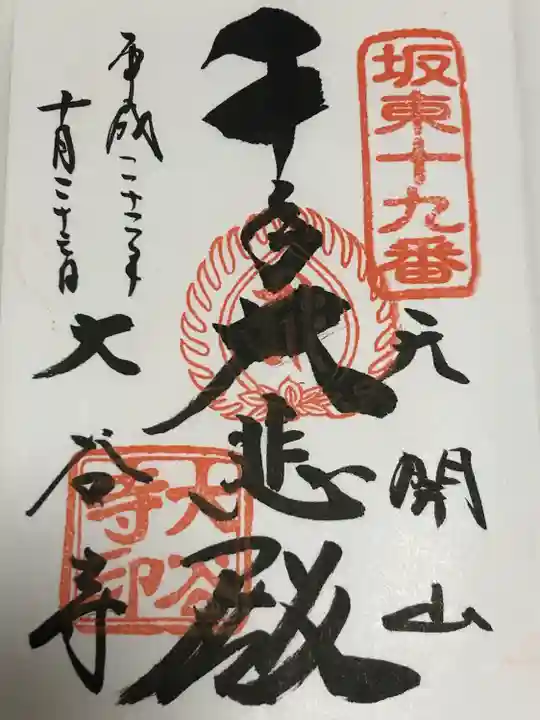 坂東十九番
天開山
千手大悲殿
平成二十二年
十月二十七日
大谷寺
大谷寺印